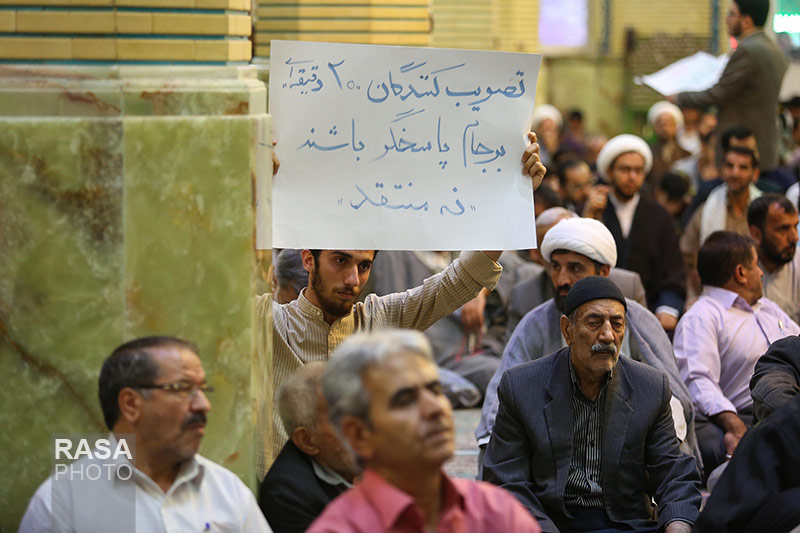 تصویب کنندگان ۲۰ دقیقه ای
برجام پاسخگر باشند
«نه منتقد»
RASA
PHOTO